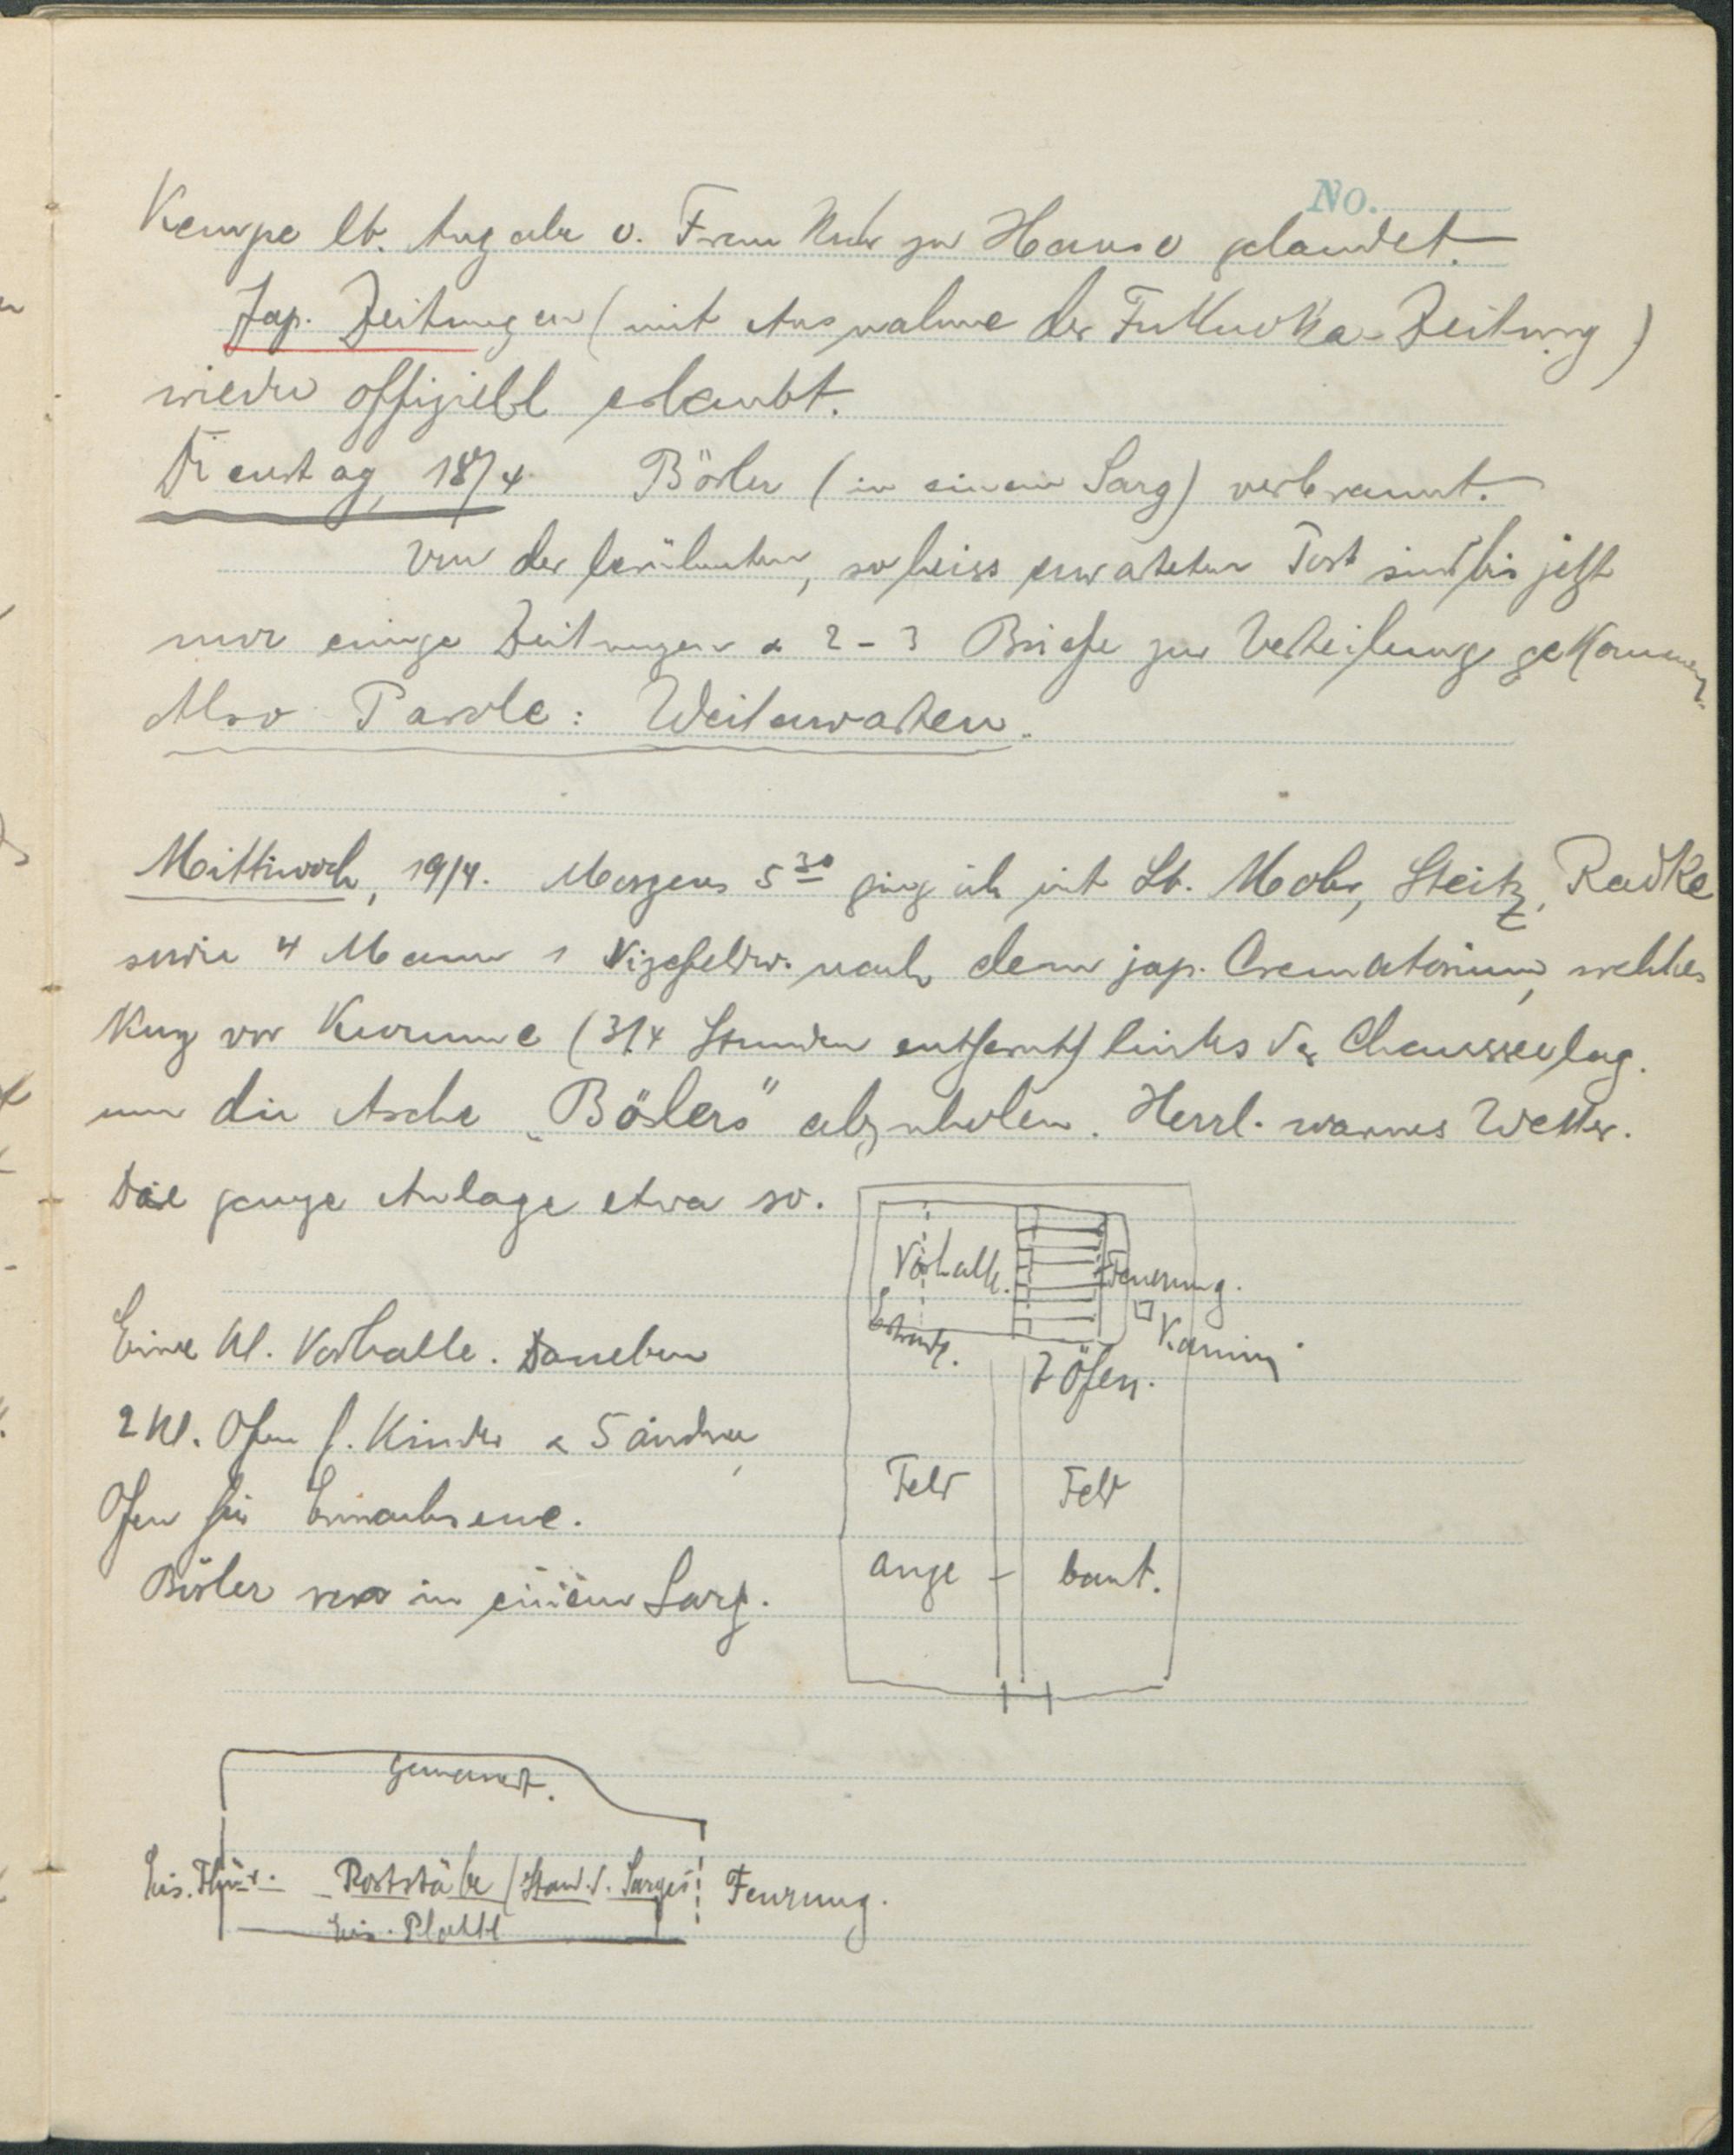 No.
Kempe lt. Angabe v. Frau zu Hause gelandet.
Jap. Zeitungen (mit Ausnahme der Fukuoka-Zeitung)
wieder offiziell erlaubt.
Dienstag, 18/4. Bösler (in einem Sarg) verbrannt.
Von der berühmten, so heiss erwarteten Post sind bis jetzt
nur einige Zeitungen & 2-3 Briefe zur Verteilung gekommen.
Also Parole: Weiterwarten.
Mittwoch, 19/4. Morgens 5 30 ging ich mit Lt. Modes, Steitz, Radke
sowie 4 Mann 1 Vizefeldw. nach dem jap. Crematorium, welches
kurz vor Kurume (3/4 Stunden entfernt) links der Chaussee lag.
um die Asche „Böslers" abzuholen. Herrl. warmes Wetter.
Die ganze Anlage etwa so.
Vorhalle.
Feuerung.
Kamin
7 Öfen.
Eine kl. Vorhalle. Daneben
2 kl. Öfen f. Kinder & 5 andere
Öfen für Erwachsene.
Bösler war in einem Sarg.
Feld Feld
ange - baut.
gemauert.
Eis. Thür. Roststäbe (Stand d. Sarges) Feurung.
Eis. Platte